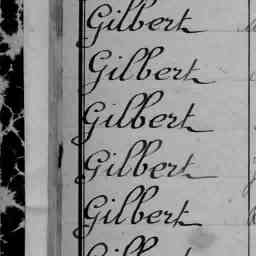 Gilbert
Gilbert
Gilbert
Gilbert
Gilbert